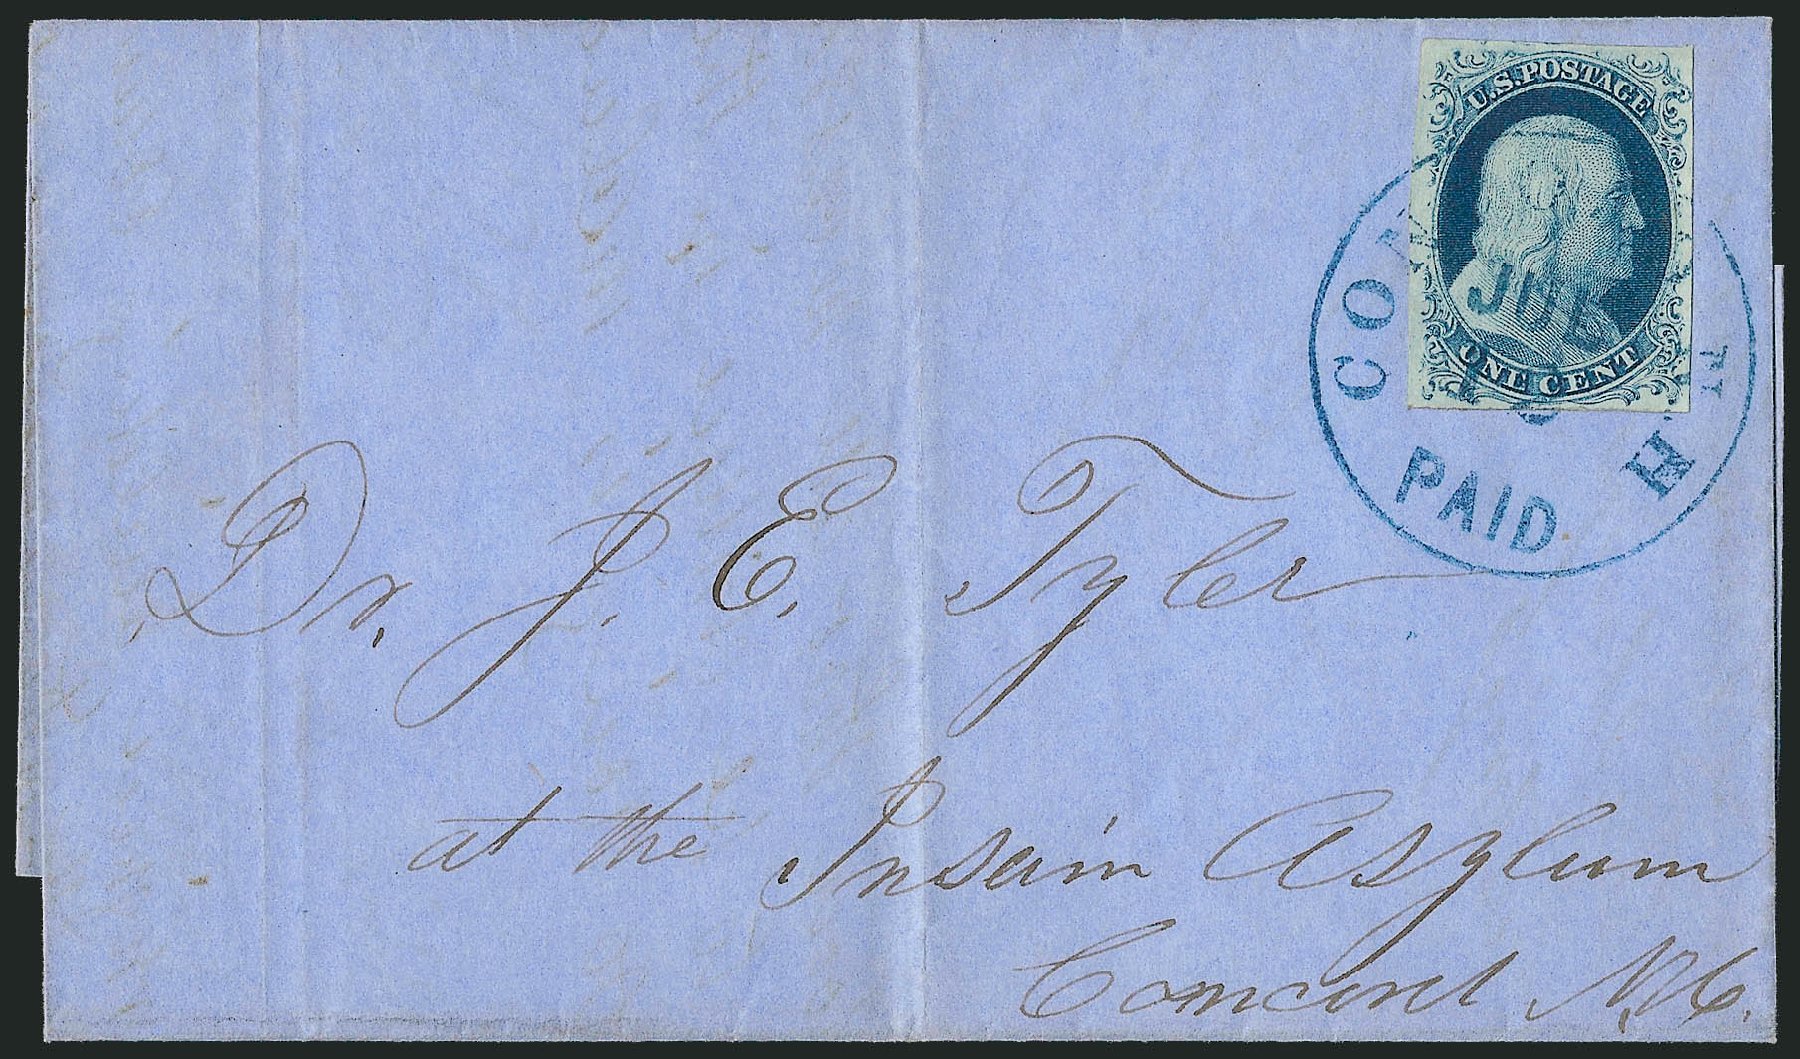 U.S. POSTAGE
ONE CENT
CON
JUL
PAID
H
Dr. J. E. Tyler
at the Insain Asylum
Concord N.H.